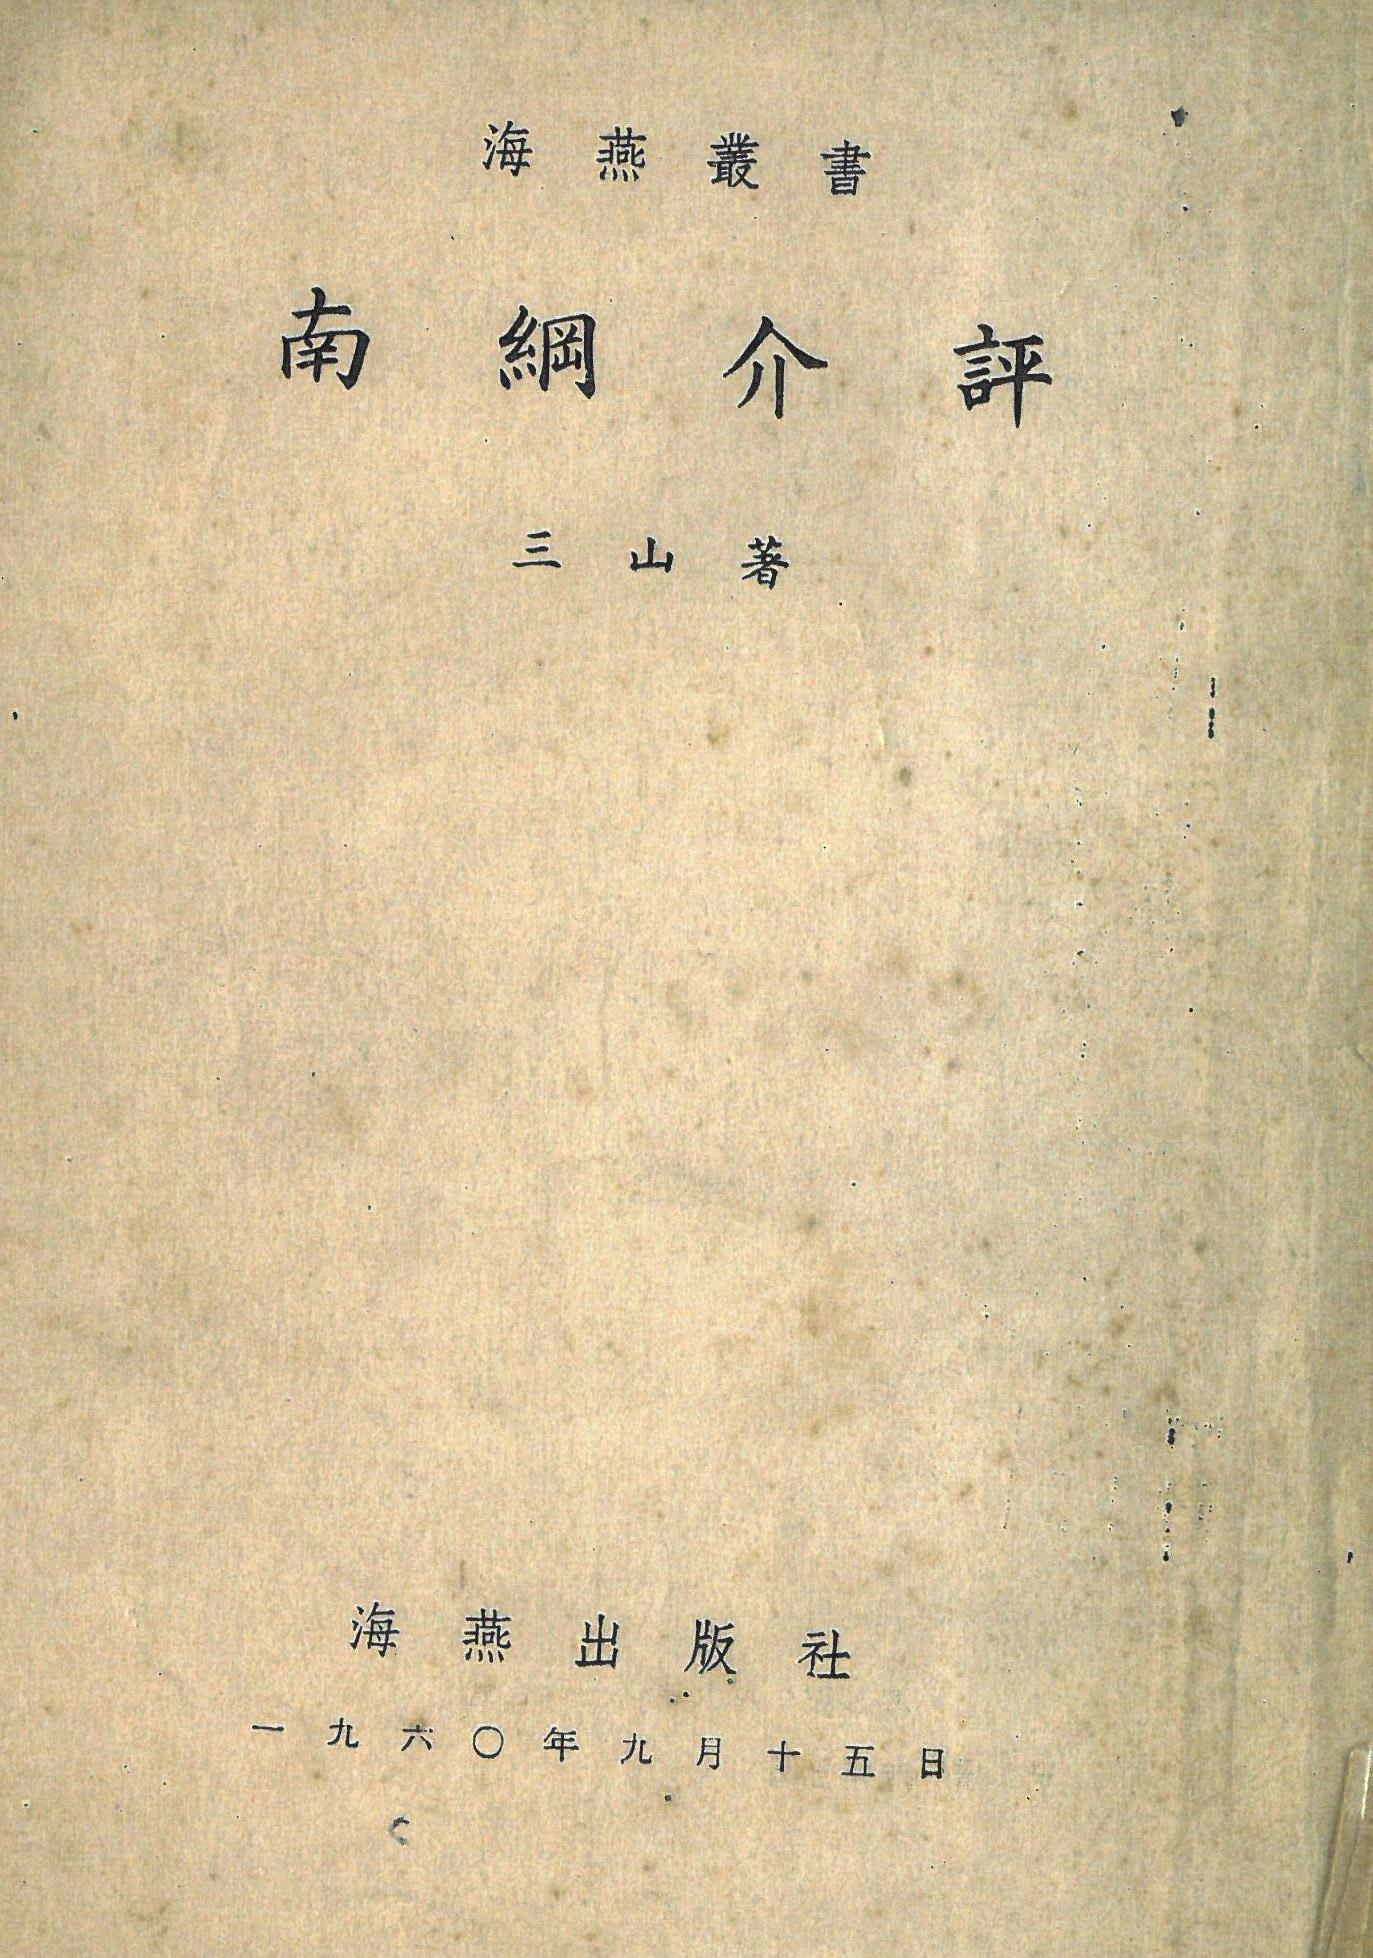 海燕叢書
南綱介評
三山著
海燕出版社
一九六〇年九月十五日